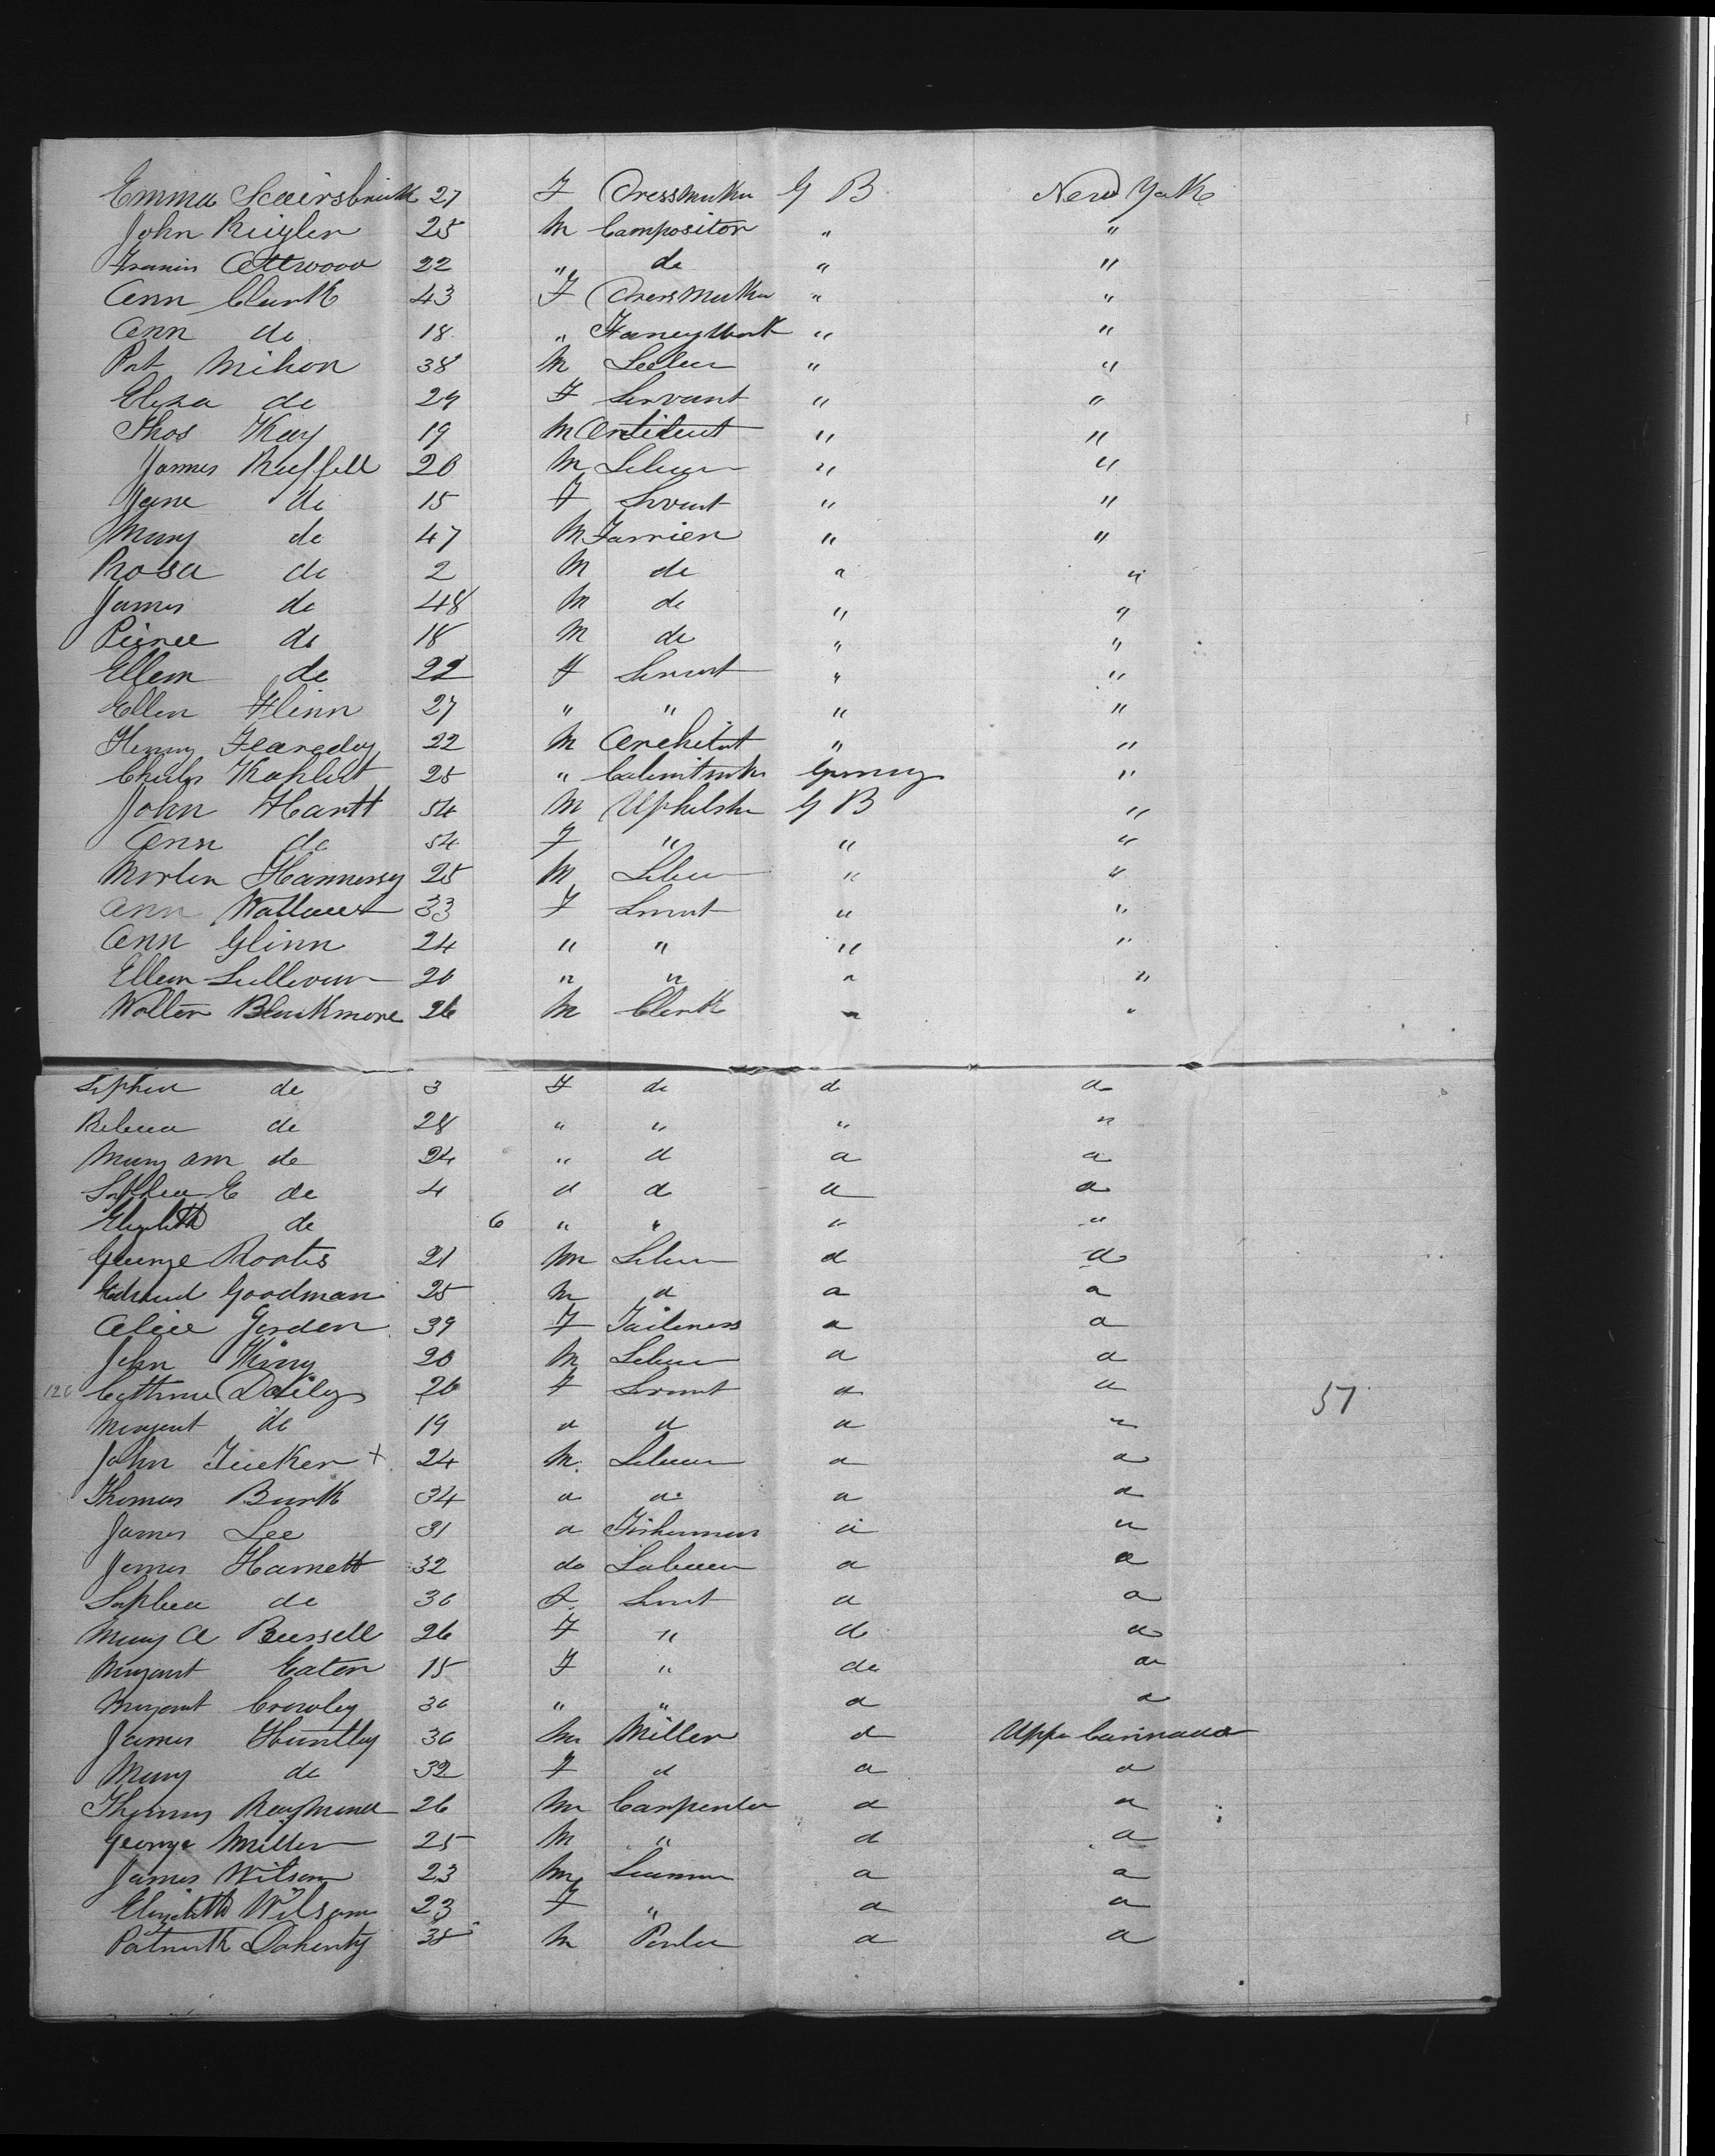 Emma Scairsbrick 27 F Dressmaker G B New York
John Quigler 25 M Compositor " "
Francis Attwood 22 " do " "
Ann Clark 43 F Dressmaker " "
Ann do 18 " Fancy Work " "
Pat Mihon 38 M " "
Eliza do 29 F Servant " "
Thos Kay 19 M " "
James Ruffell 20 M Labour " "
Jane do 15 F Servant " "
Mary do 47 M Farrier " "
Rosa do 2 M do " "
James do 48 M do " "
Pierce do 18 M do " "
Ellem do 22 F Servant " "
Ellen Flinn 27 " " " "
Henry 22 M Architect " "
Charles 25 " Germany "
John Hartt 54 M Upholster G B "
Ann do 54 F " " "
Martin Hannessy 25 M Labour " "
Ann 33 F Servant " "
Ann Glinn 24 " " " "
Ellen Sullivan 20 " " " "
Walter Blackmore 26 M Clerk " "
Sophia do 3 F do do do
Rebecca do 28 " " " "
Mary Ann do 24 " do do do
Sophia E do 4 do do do do
Elizabeth do 6 " " " "
George 21 M Labour do do
Edward Goodman 25 M do do do
Alice Gorden 39 F Tailoress do do
John King 20 M Labour do do
126 Cathrine Daily 26 F Servant do do 57
Margaret do 19 do do do "
John Tucker + 24 M Labour do do
Thomas Burk 34 do do do do
James Lee 31 do Fisherman do do
James Harnett 32 do Labour do do
Sophia do 30 F Servant do do
Mary A Bussell 26 F " do do
Margaret Eaton 15 F " do do
Margaret Crowley 30 " " do do
James Huntley 36 M Miller do Upper Cannada
Mary do 32 F do do do
Thomas Raymond 26 M Carpenter do do
George Miller 25 M " do do
James Wilson 23 M Seaman do do
Elizabeth Wilson 23 F " do do
Patrick Dohenty 38 M do do